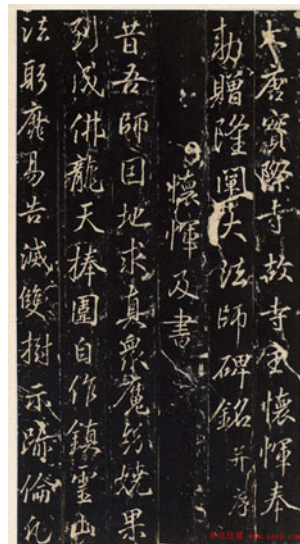 大唐寶際寺故寺主懷惲奉
勅贈隆闡大法師碑銘并序
懷惲及書
昔吾師因地求真衆魔紛嬈果
到成佛龍天捧圍自作鎮靈山
法躬靡易告滅雙樹示跡倫凡